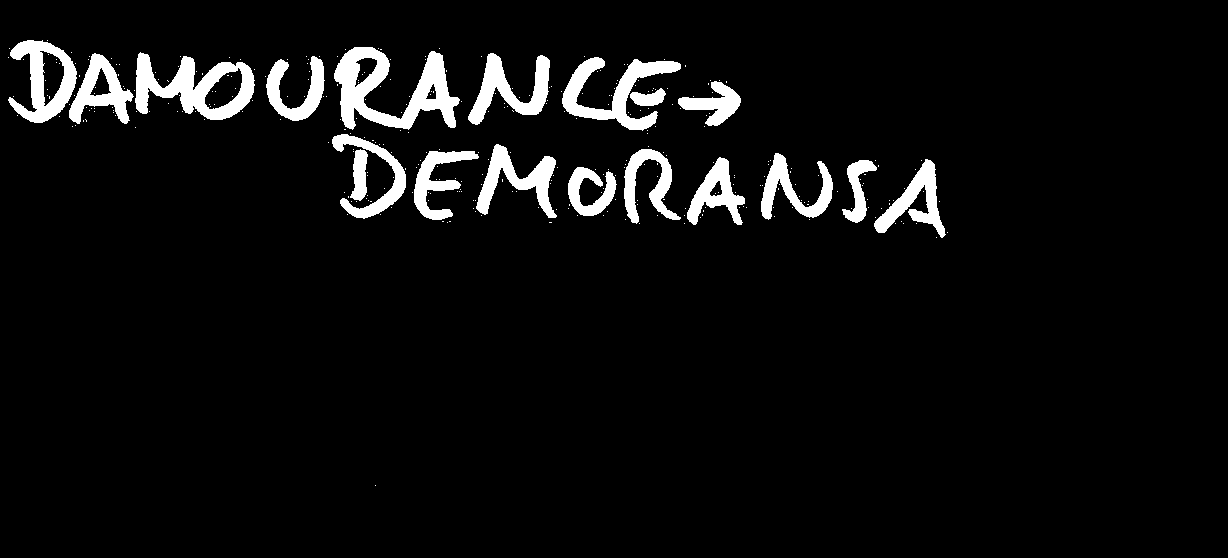 DAMOURANCE→
DEMORANSA